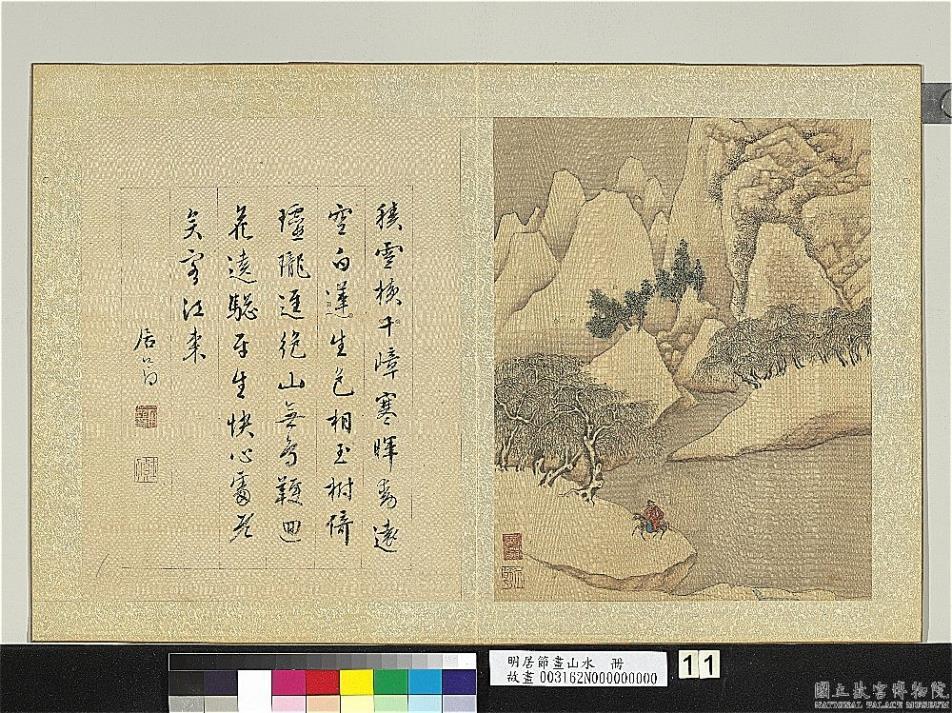 積雪換千嶂寒暉動遠
空白蓮生色相玉樹倚
瓏逕絕山無鳥鞭迴
花遶驄平生快心處老
矣客江東
居節
明居節畫山水　冊
故畫 003162N000000000
11
國立故宮博物院
NATIONAL PALACE MUSEUM